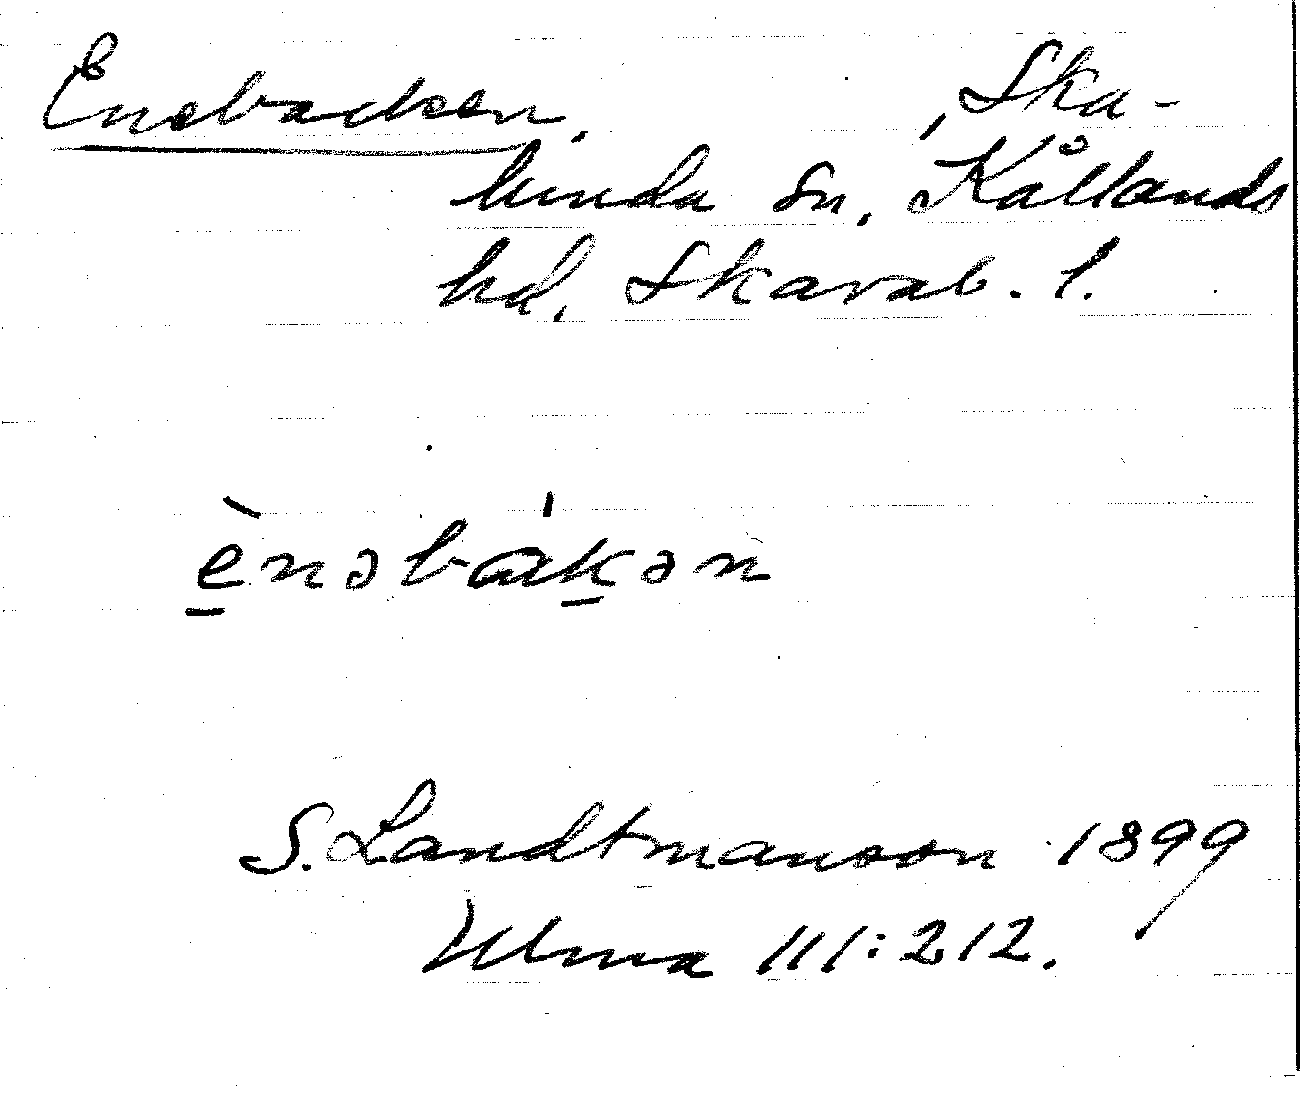 Enebacken, Ska-
hinda sn, Kållands
hd. Skarab. l.
è̱nəbáḵən
S. Landtmanson 1899
Ulma 111:212.